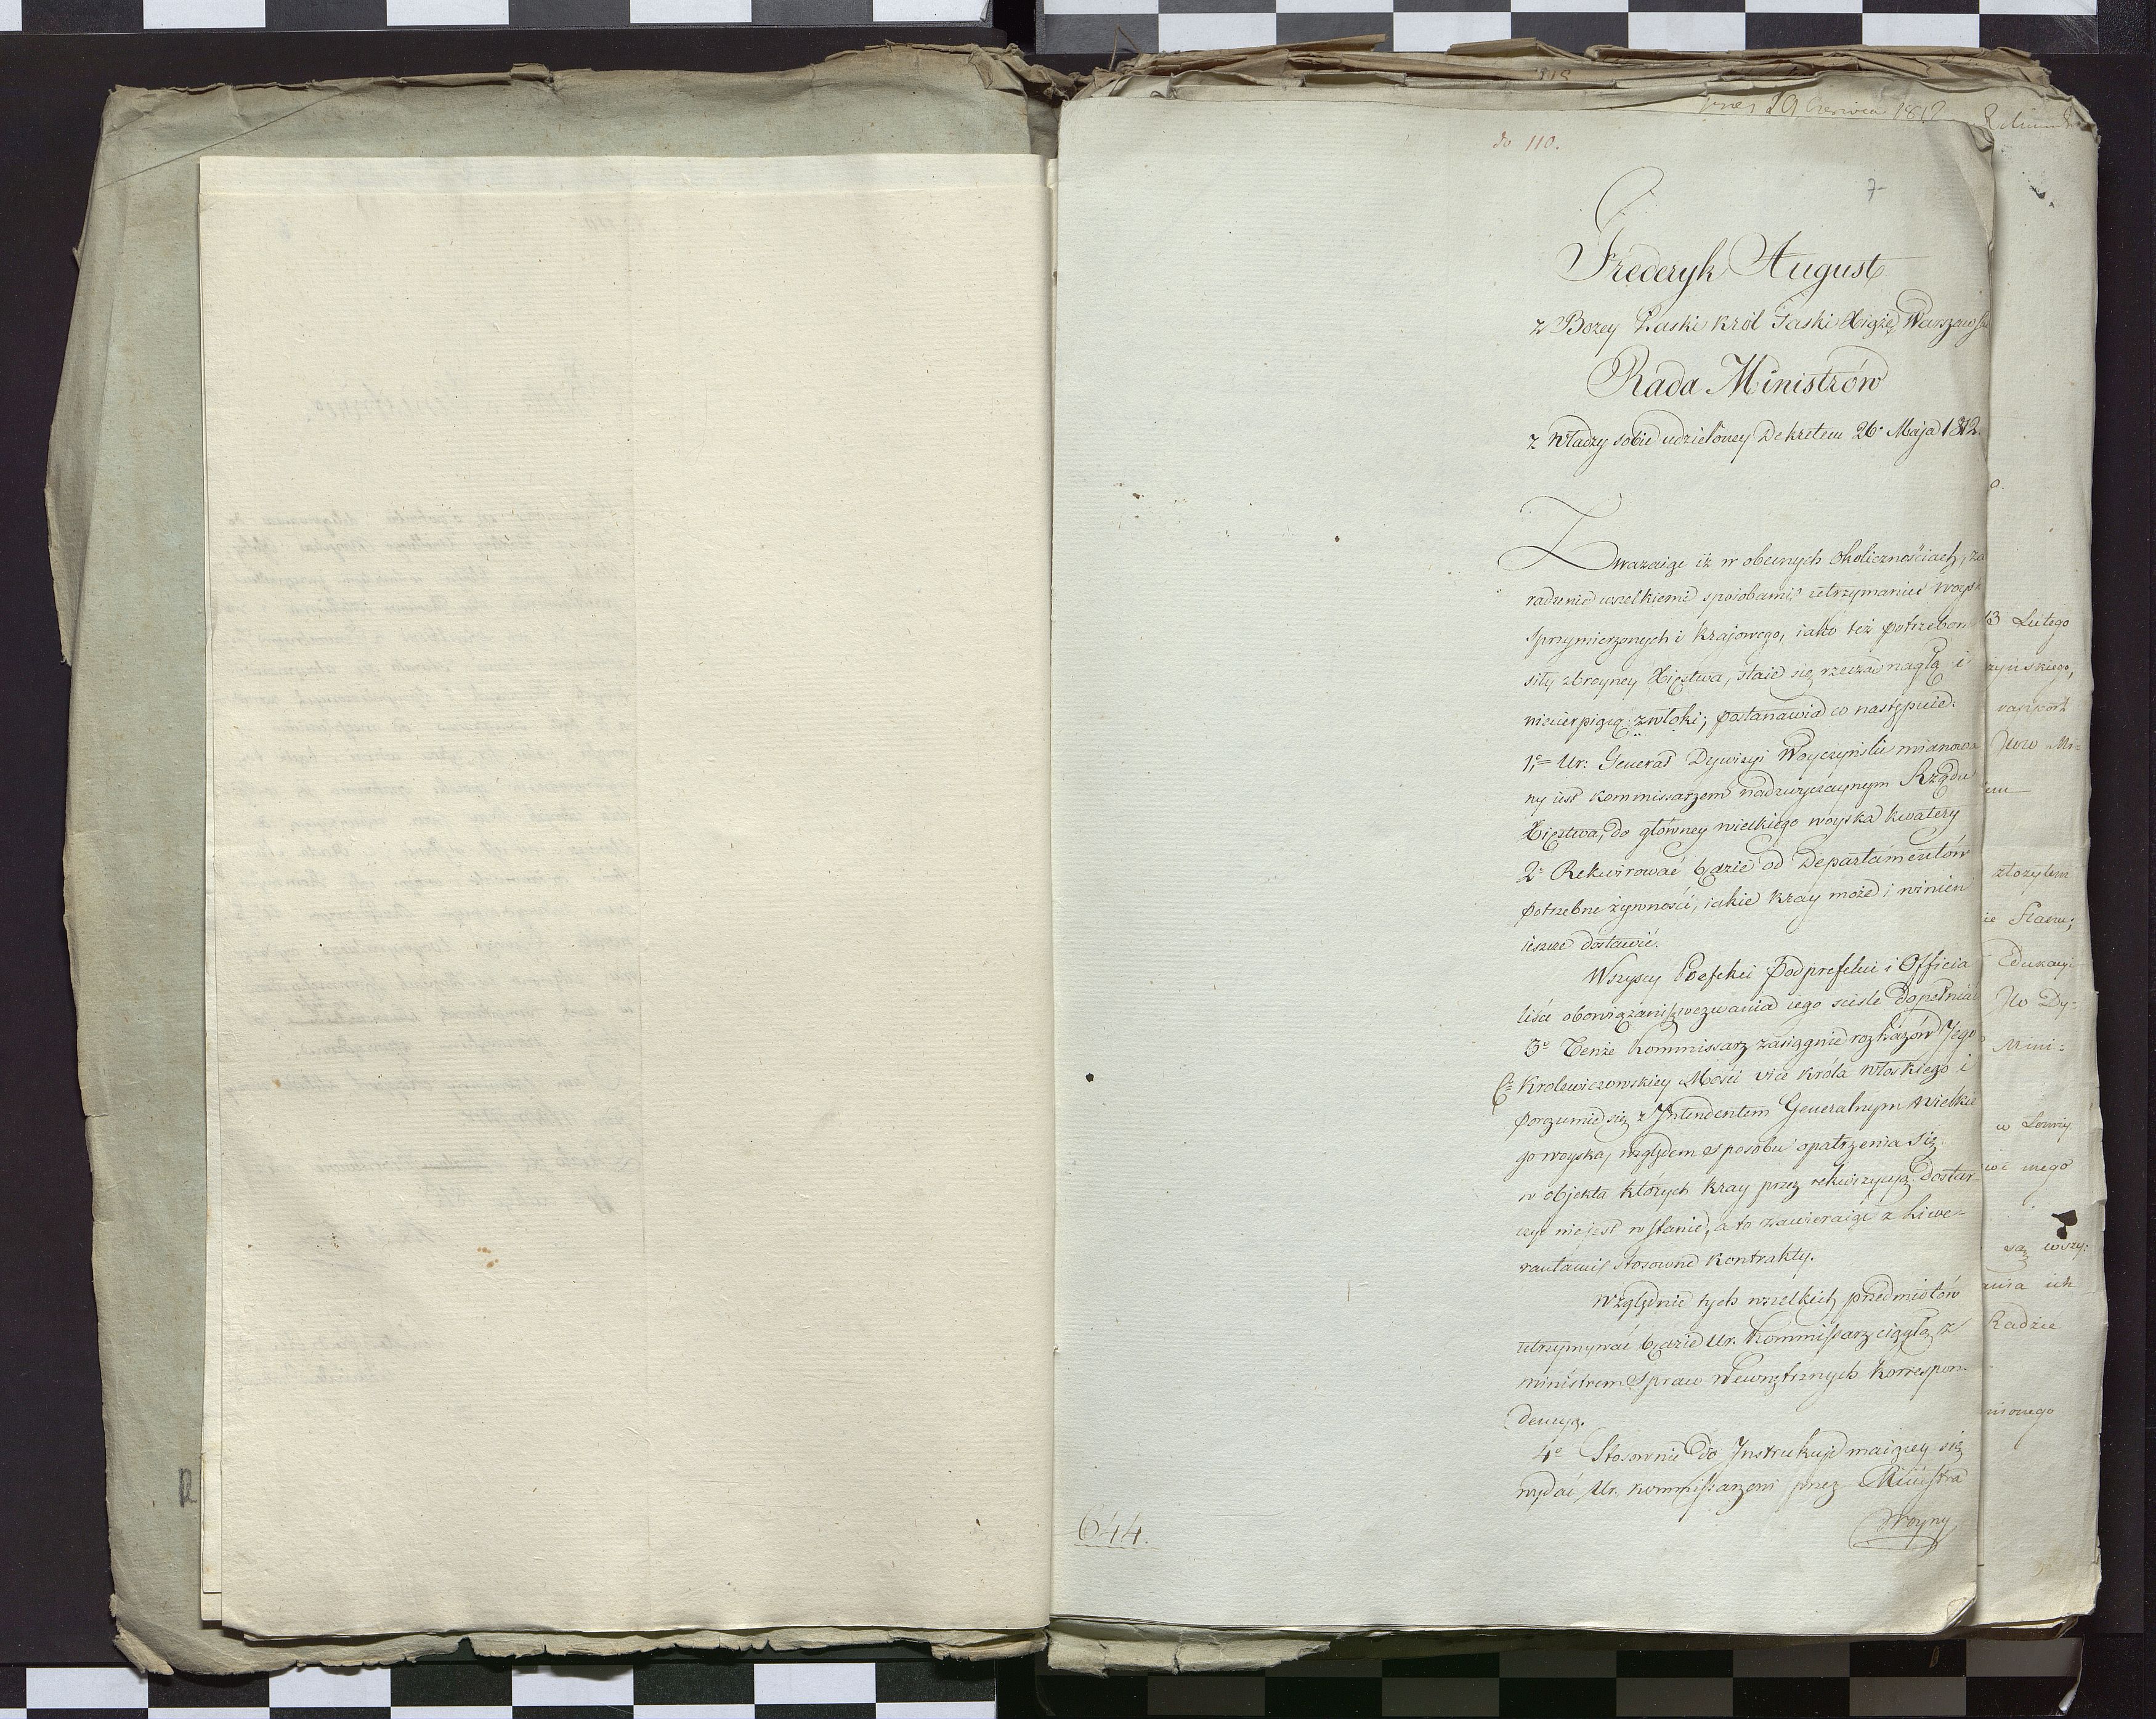 do 110.
7
Frederyk August
z Bozey Łaski Król Saski Xiąże Warszawsk
Rada Ministrów
z Władzy sobie udzieloney Dekretem 26. Maja 1812.
Zwazaiąc iż w obecnych Okolicznościach, za
radzenie wszelkiemi sposobami utrzymanie woysk
sprzymierzonych i krajowego, iako też potrzebom
siły zbroyney Xięztwa, staie się rzeczą nagłą i
niecierpiącą zwłoki; postanawia co następuie:
1.e Ur: Generał Dywizyi Woyczyński mianowa
ny iest kommissarzem nadzwyczaynym Rządu
Xięztwa, do główney wielkiego woyska kwatery
2.e Rekwirować będzie od Departamentów
potrzebne żywności, iakie kray może i winien
ieszcze dostawić.
Wszyscy Prefekci Podprefekci i Officia
liści obowiązani są wezwania iego scisle dopełniać
3.e Tenże Kommissarz zasiągnie rozkazów Jego
C. Krolewiczowskiey Mości vice króla włoskiego i
porozumie się z Intendentem Generalnym wielkie
go woyska, względem sposobu opatrzenia się
w objekta których kray przez rekwizycyą dostar
czyć nie jest w stanie, a to zawieraiąc z Liwe-
rantami stosowne kontrakty.
Względnie tych wszelkich przedmiotów
utrzymywać będzie Ur. Kommissarz ciągłą z
ministrem Spraw Wewnętrznych Korrespon-
dencyą.
4.e Stosownie do Instrukcyi maiącey się
wydać Ur. kommissarzowi przez Ministra
Woyny
644.
dnia 19 Czerwca 1812
13 Lutego
żyńskiego,
rapport
złożyłem
ie Stanu;
Edukacyi
Mini=
w Łowiy
mego
są wszy:
ania ich
Radzie
nionego